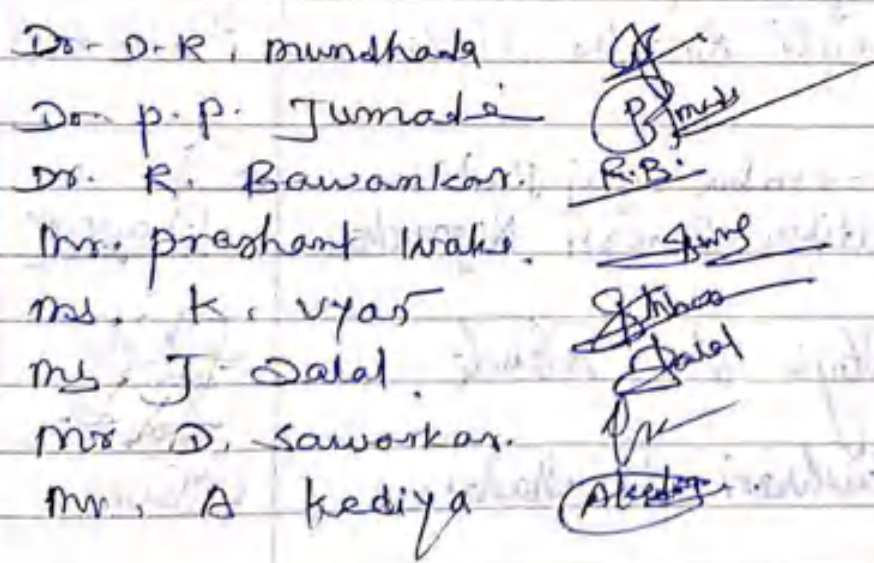 Dr. D.R. Mundhada
Dr. P.P. Jumade
Dr. R. Bawankar. R.B.
Mr. Prashant Wake.
Ms. K. Vyas
Ms. J. Dalal. Dalal
Mr D. Sawarkar.
Mr. A Kediya AKediya